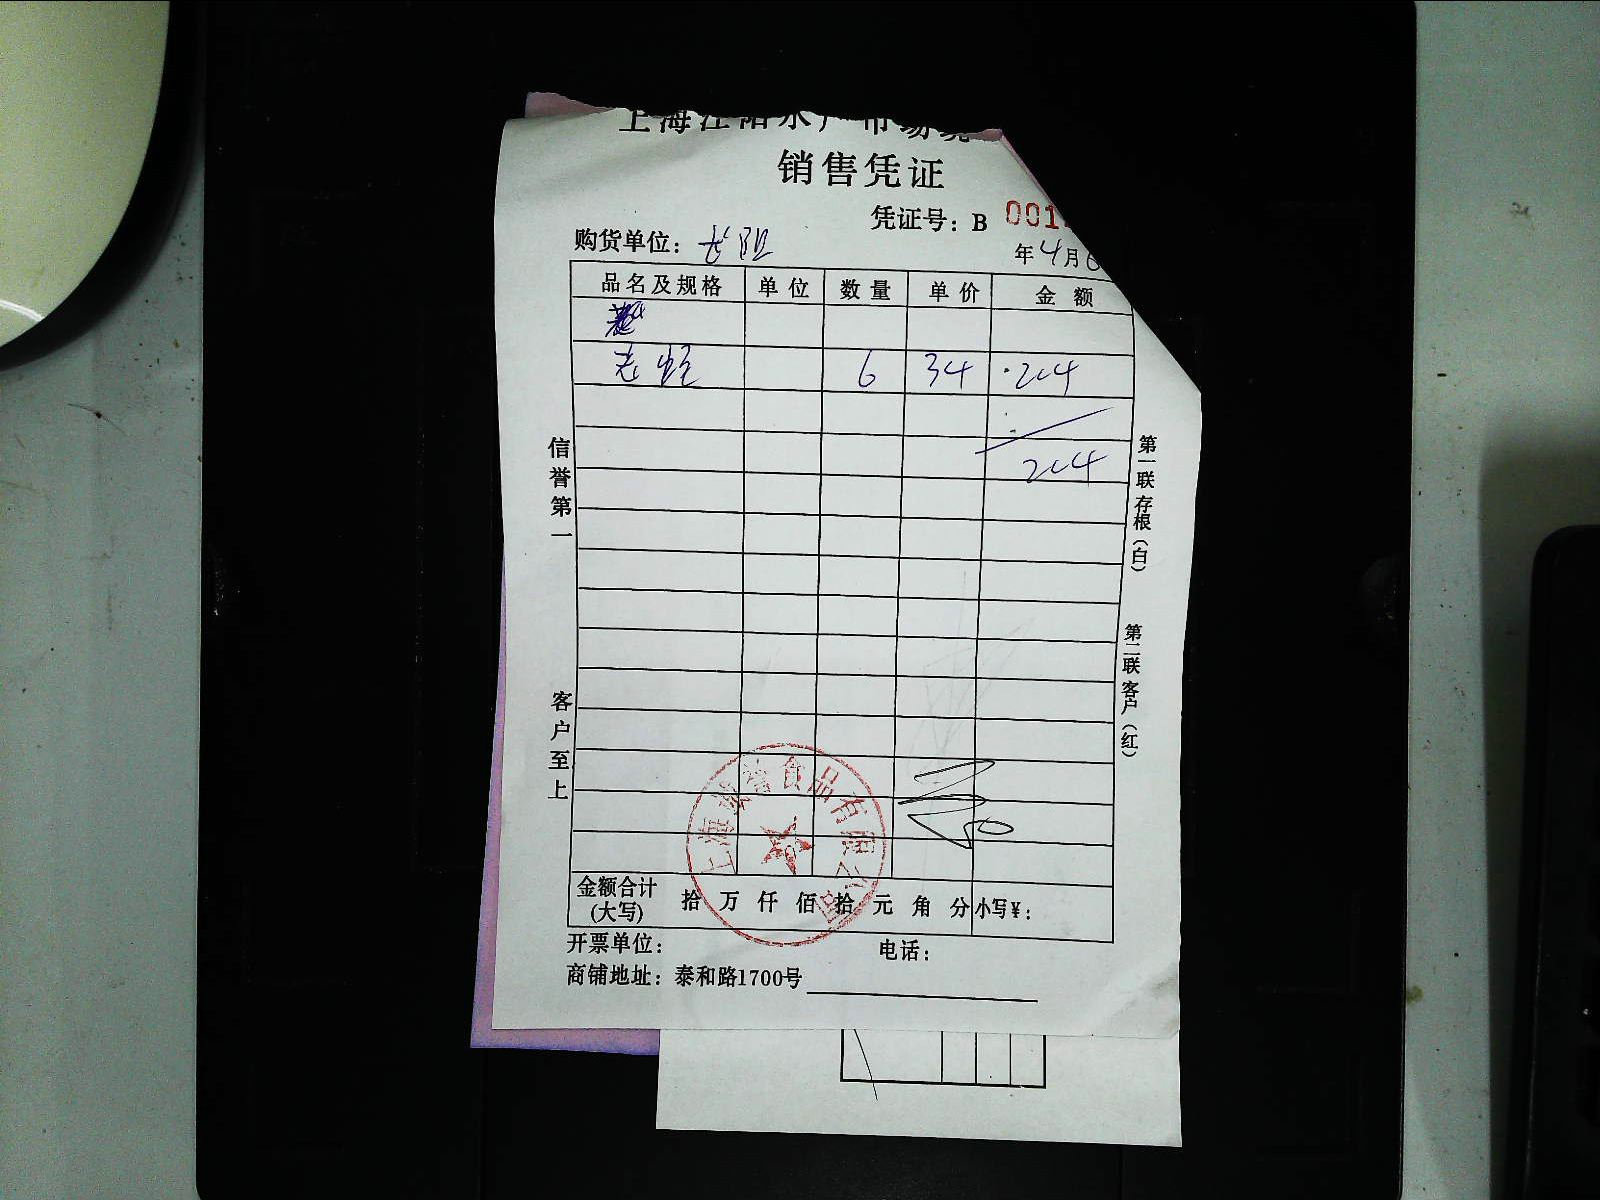 上海江阳水产市场
销售凭证
凭证号：B 001
购货单位：长阳
年4月6
品名及规格 单位 数量 单价 金额
老蛏 6 34 204
204
信誉第一
客户至上
第一联存根（白）
第二联客户（红）
上海 食品有限公司
金额合计(大写) 拾 万 仟 佰 拾 元 角 分 小写¥：
开票单位： 电话：
商铺地址：泰和路1700号